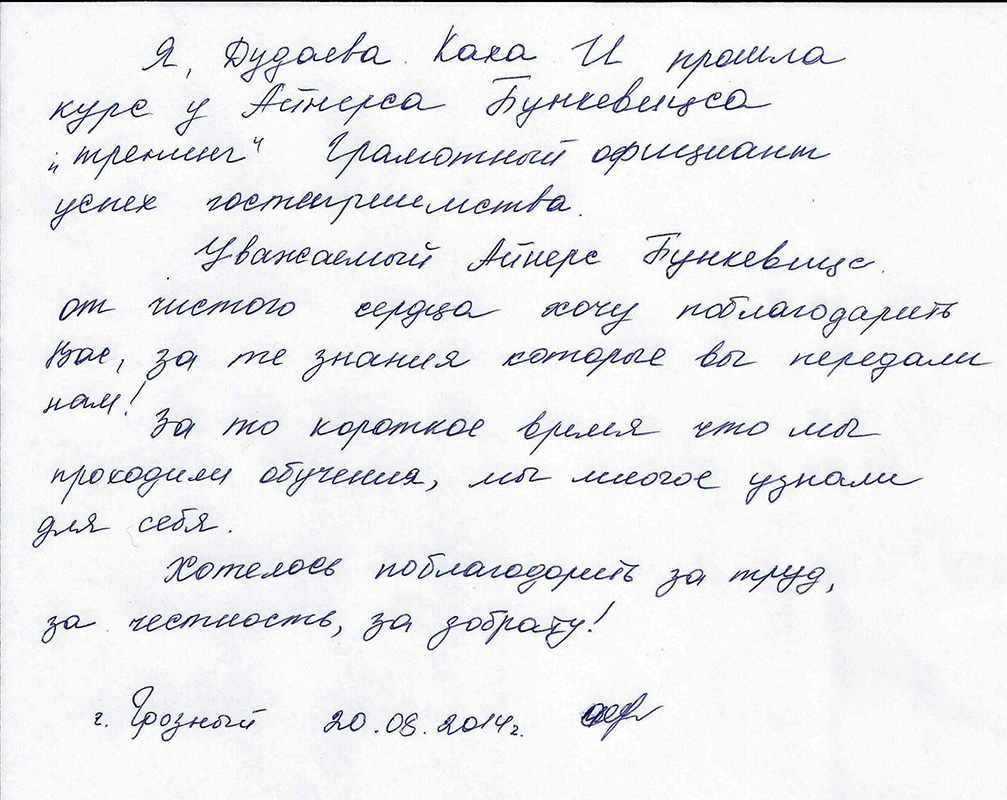 Я, Дудаева Каха И прошла
курс у Айнерса Бункевицса
„тренинг“ Грамотный официант
успех гостеприимства.
Уважаемый Айнерс Бункевицс.
от чистого сердца хочу поблагодарить
Вас, за те знания которые вы передали
нам!
За то короткое время что мы
проходили обучения, мы многое узнали
для себя.
Хотелось поблагодорить за труд,
за честность, за зобрату!
г. Грозный 20.08.2014г.